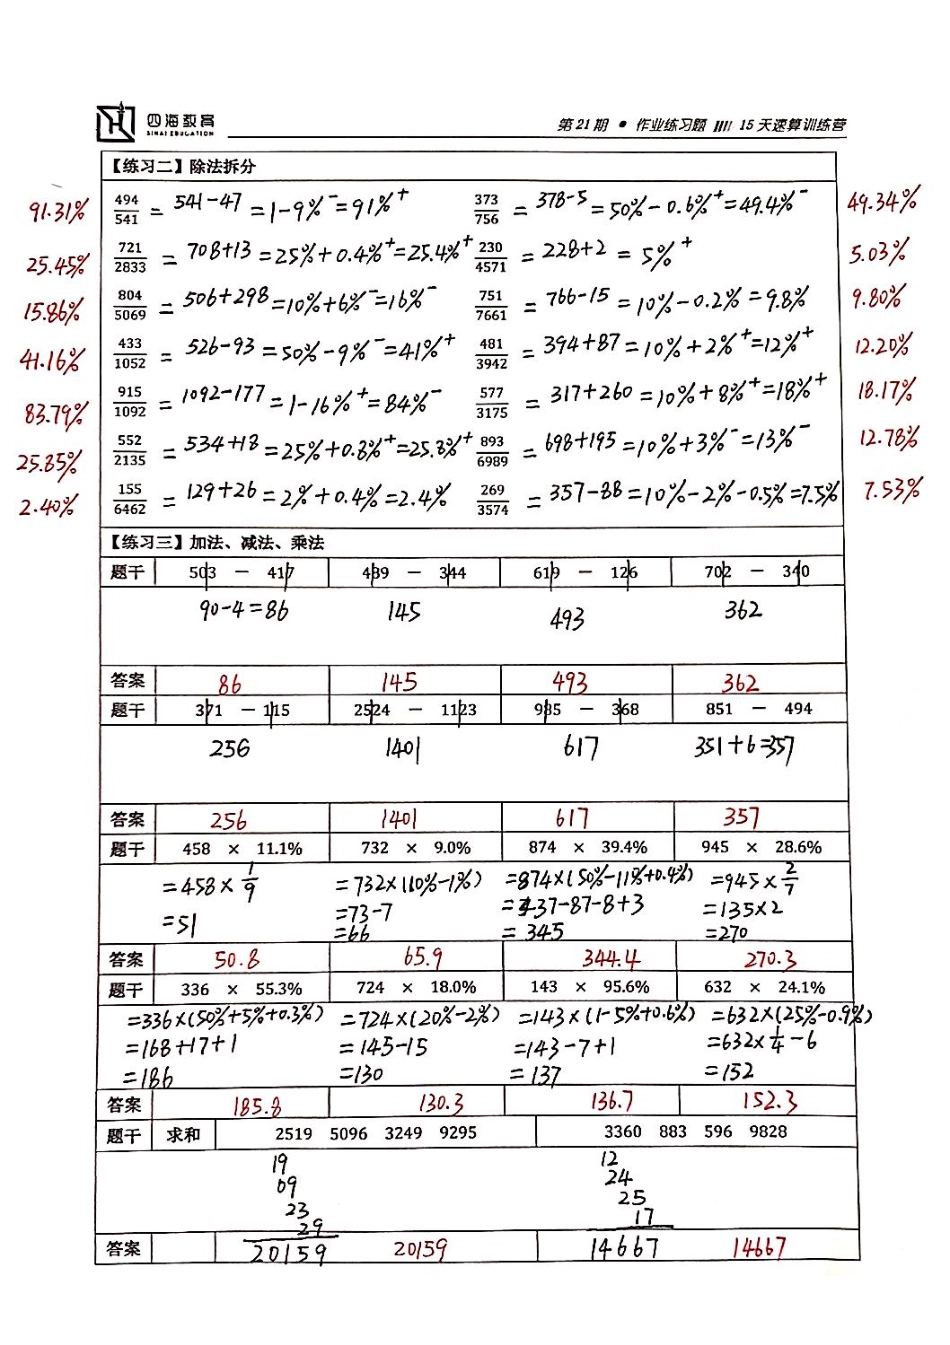 四海教育
SIHAI EDUCATION
第 21 期 • 作业练习题 //// 15 天速算训练营
【练习二】除法拆分
91.31% 494/541 = 541-47 = 1-9%⁻ = 91%⁺ 373/756 = 378-5 = 50%-0.6%⁺ = 49.4%⁻ 49.34%
25.45% 721/2833 = 708+13 = 25%+0.4%⁺ = 25.4%⁺ 230/4571 = 228+2 = 5%⁺ 5.03%
15.86% 804/5069 = 506+298 = 10%+6%⁻ = 16%⁻ 751/7661 = 766-15 = 10%-0.2% = 9.8% 9.80%
41.16% 433/1052 = 526-93 = 50%-9%⁻ = 41%⁺ 481/3942 = 394+87 = 10%+2%⁺ = 12%⁺ 12.20%
83.79% 915/1092 = 1092-177 = 1-16%⁺ = 84%⁻ 577/3175 = 317+260 = 10%+8%⁺ = 18%⁺ 18.17%
25.85% 552/2135 = 534+18 = 25%+0.8%⁺ = 25.8%⁺ 893/6989 = 698+195 = 10%+3%⁻ = 13%⁻ 12.78%
2.40% 155/6462 = 129+26 = 2%+0.4% = 2.4% 269/3574 = 357-88 = 10%-2%-0.5% = 7.5% 7.53%
【练习三】加法、减法、乘法
题干 503 － 417 489 － 344 619 － 126 702 － 340
90-4=86 145 493 362
答案 86 145 493 362
题干 371 － 115 2524 － 1123 985 － 368 851 － 494
256 1401 617 351+6=357
答案 256 1401 617 357
题干 458 × 11.1% 732 × 9.0% 874 × 39.4% 945 × 28.6%
=458×1/9 =732×(10%-1%) =874×(50%-11%+0.4%) =945×2/7
=51 =73-7 =437-87-8+3 =135×2
=66 =345 =270
答案 50.8 65.9 344.4 270.3
题干 336 × 55.3% 724 × 18.0% 143 × 95.6% 632 × 24.1%
=336×(50%+5%+0.3%) =724×(20%-2%) =143×(1-5%+0.6%) =632×(25%-0.9%)
=168+17+1 =145-15 =143-7+1 =632×1/4-6
=186 =130 =137 =152
答案 185.8 130.3 136.7 152.3
题干 求和 2519 5096 3249 9295 3360 883 596 9828
19 12
09 24
23 25
29 17
答案 20159 20159 14667 14667